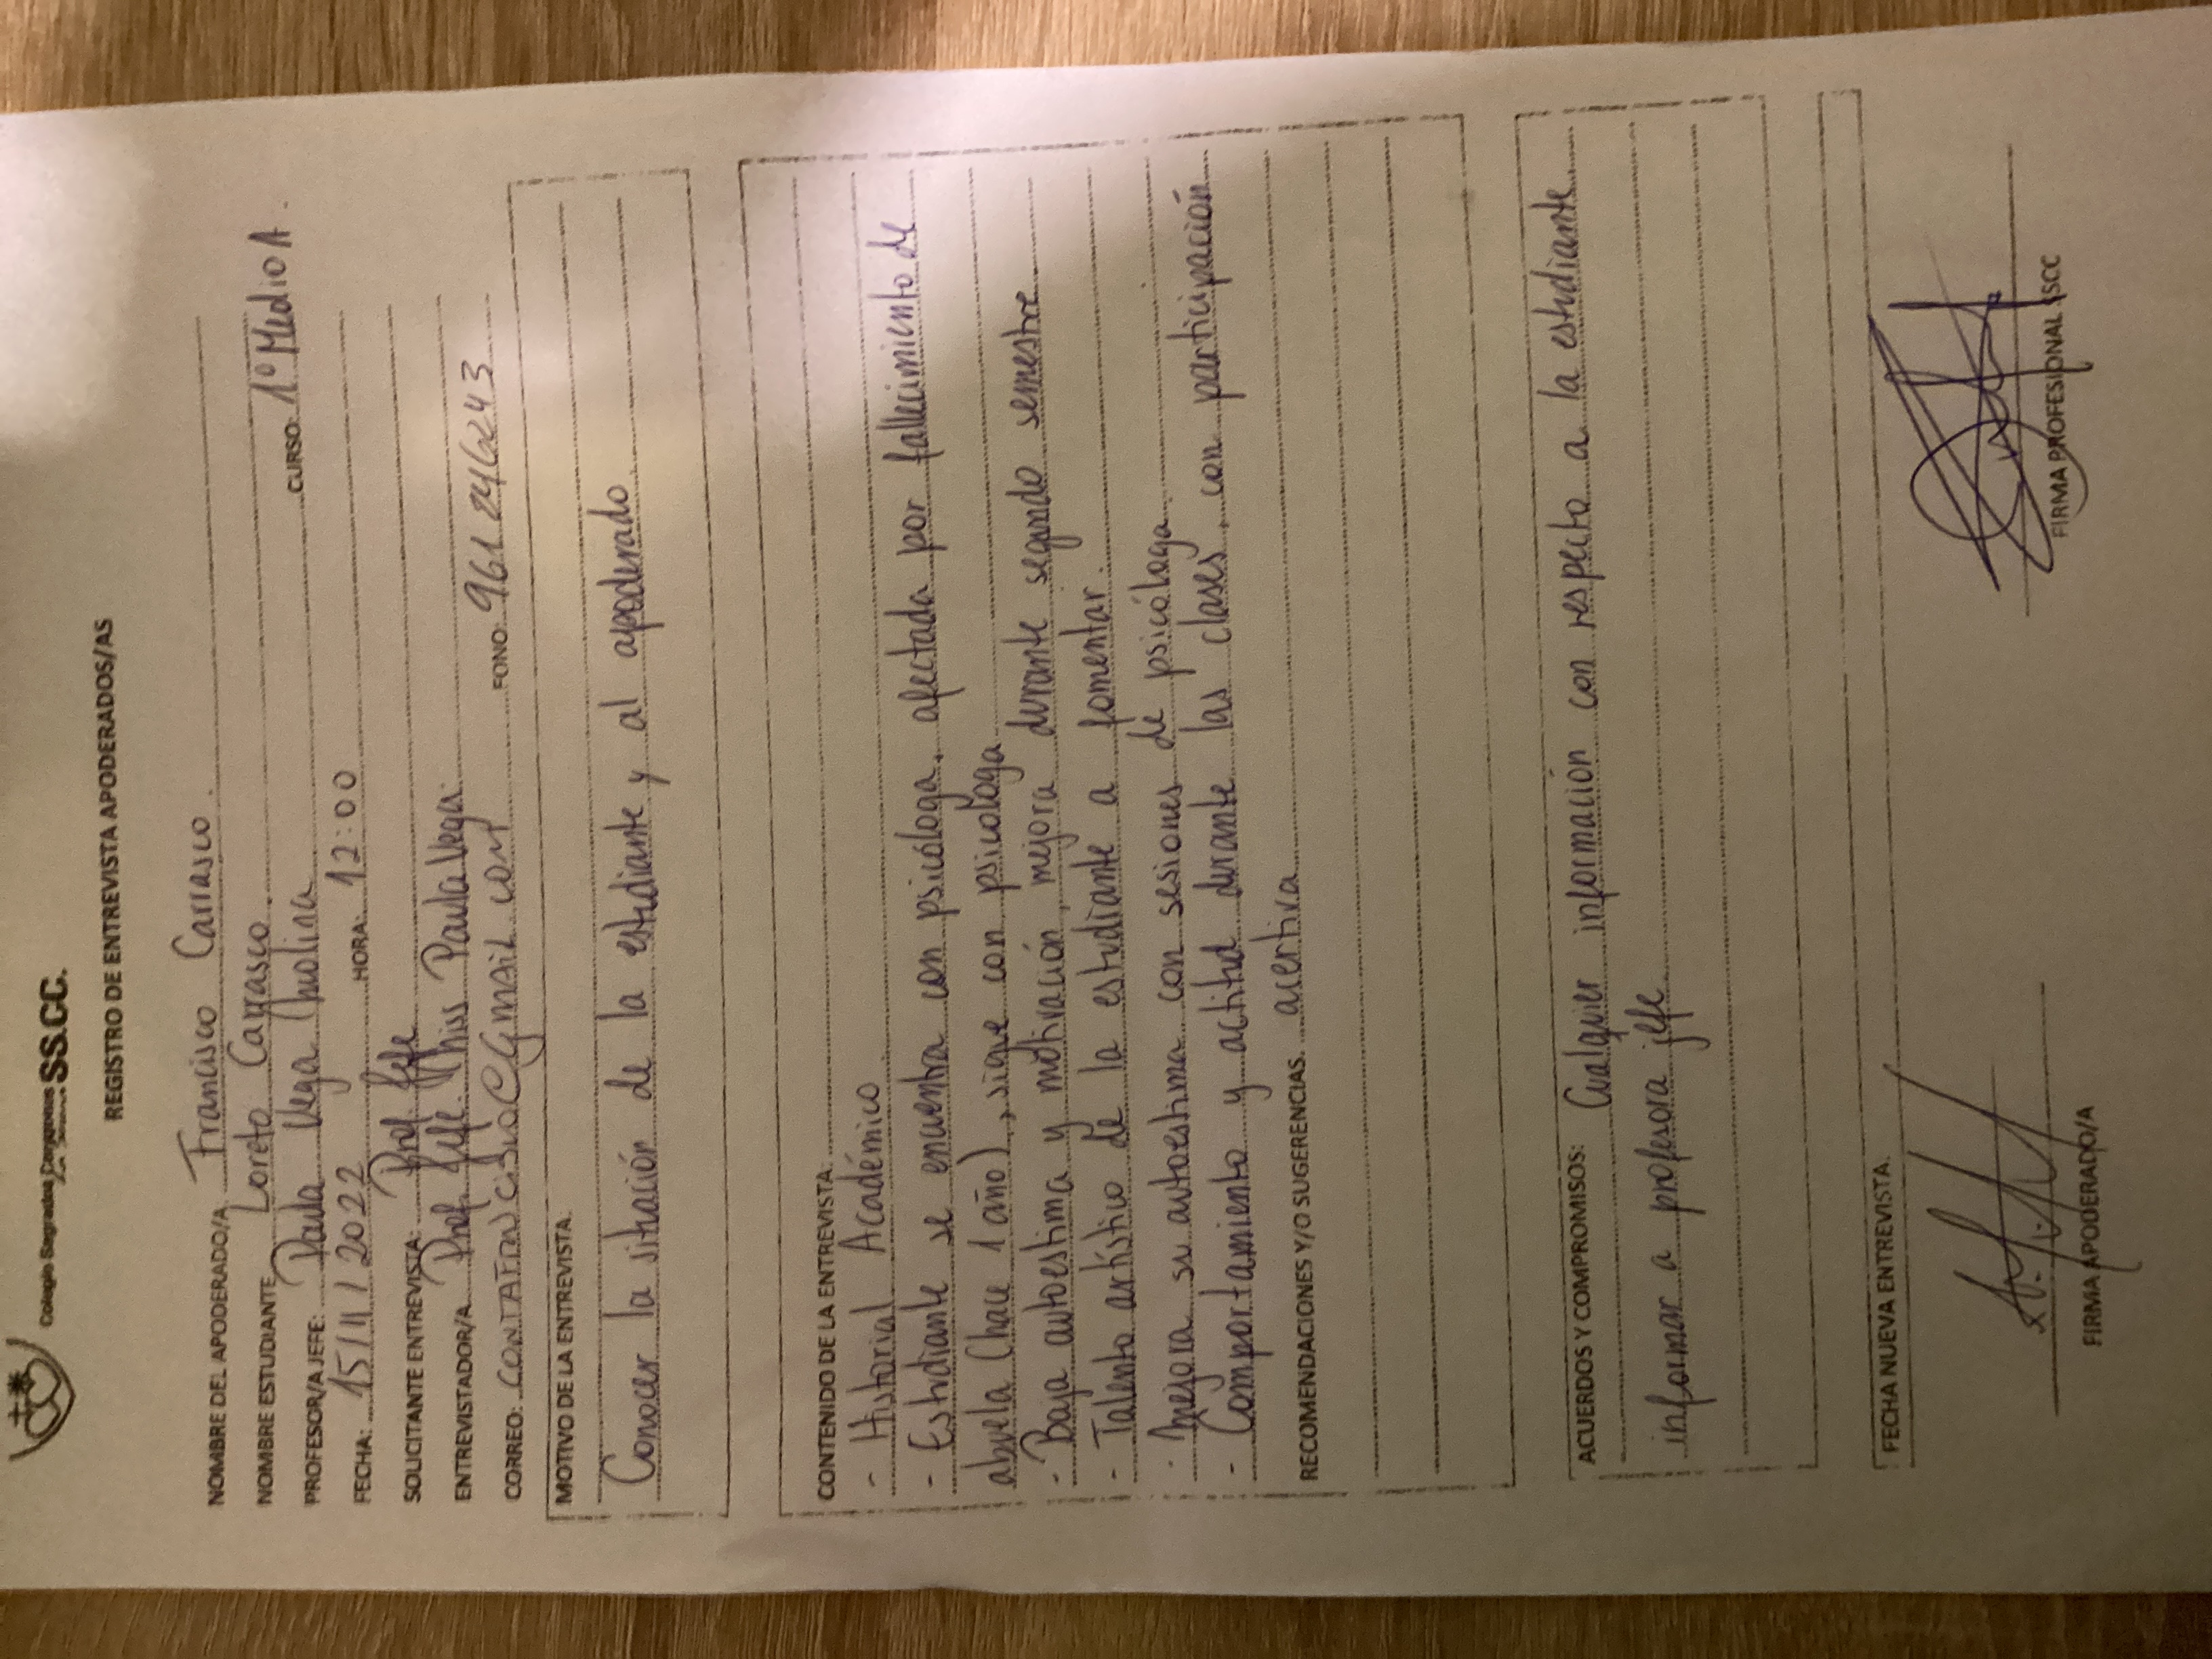 Colegio Sagrados Corazones SS.CC.
REGISTRO DE ENTREVISTA APODERADOS/AS
NOMBRE DEL APODERADO/A. Francisco Carrasco.
NOMBRE ESTUDIANTE Loreto Carrasco. CURSO: 1º Medio A.
PROFESOR/A JEFE: Paula Vega Molina
FECHA: 15/11/2022 HORA: 12:00
SOLICITANTE ENTREVISTA: Prof Jefe
ENTREVISTADOR/A. Prof Jefe. Miss Paula Vega.
CORREO: FONO: 961 246243
MOTIVO DE LA ENTREVISTA.
Conocer la situación de la estudiante y al apoderado.
CONTENIDO DE LA ENTREVISTA.
- Historial Académico
- Estudiante se encuentra con psicóloga, afectada por fallecimiento de
abuela (hace 1 año), sigue con psicologa.
- Baja autoestima y motivación, mejora durante segundo semestre
- Talento artístico de la estudiante a fomentar.
- Mejora su autoestima con sesiones de psicóloga.
- Comportamiento y actitud durante las clases, con participación
RECOMENDACIONES Y/O SUGERENCIAS. acertiva
ACUERDOS Y COMPROMISOS: Cualquier información con respecto a la estudiante
informar a profesora jefe.
FECHA NUEVA ENTREVISTA.
FIRMA APODERADO/A FIRMA PROFESIONAL SSCC